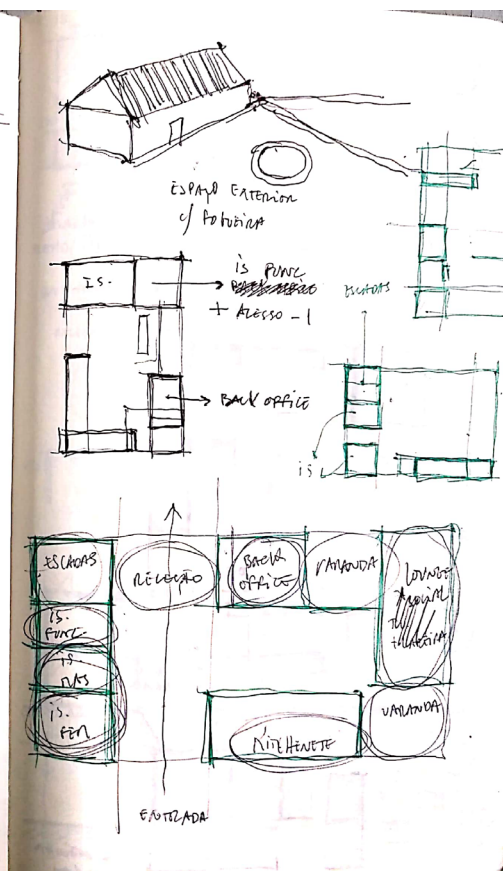 ESPAÇO EXTERIOR
c/ FOGUEIRA
IS.
IS FUNC
+ ACESSO -1
ESCADAS
BACK OFFICE
IS
ESCADAS
RECEÇÃO
BACK
OFFICE
VARANDA
LOUNGE
SOCIAL
IS.
FUNC
IS
MAS
IS.
FEM
VARANDA
KITCHENETE
ENTRADA